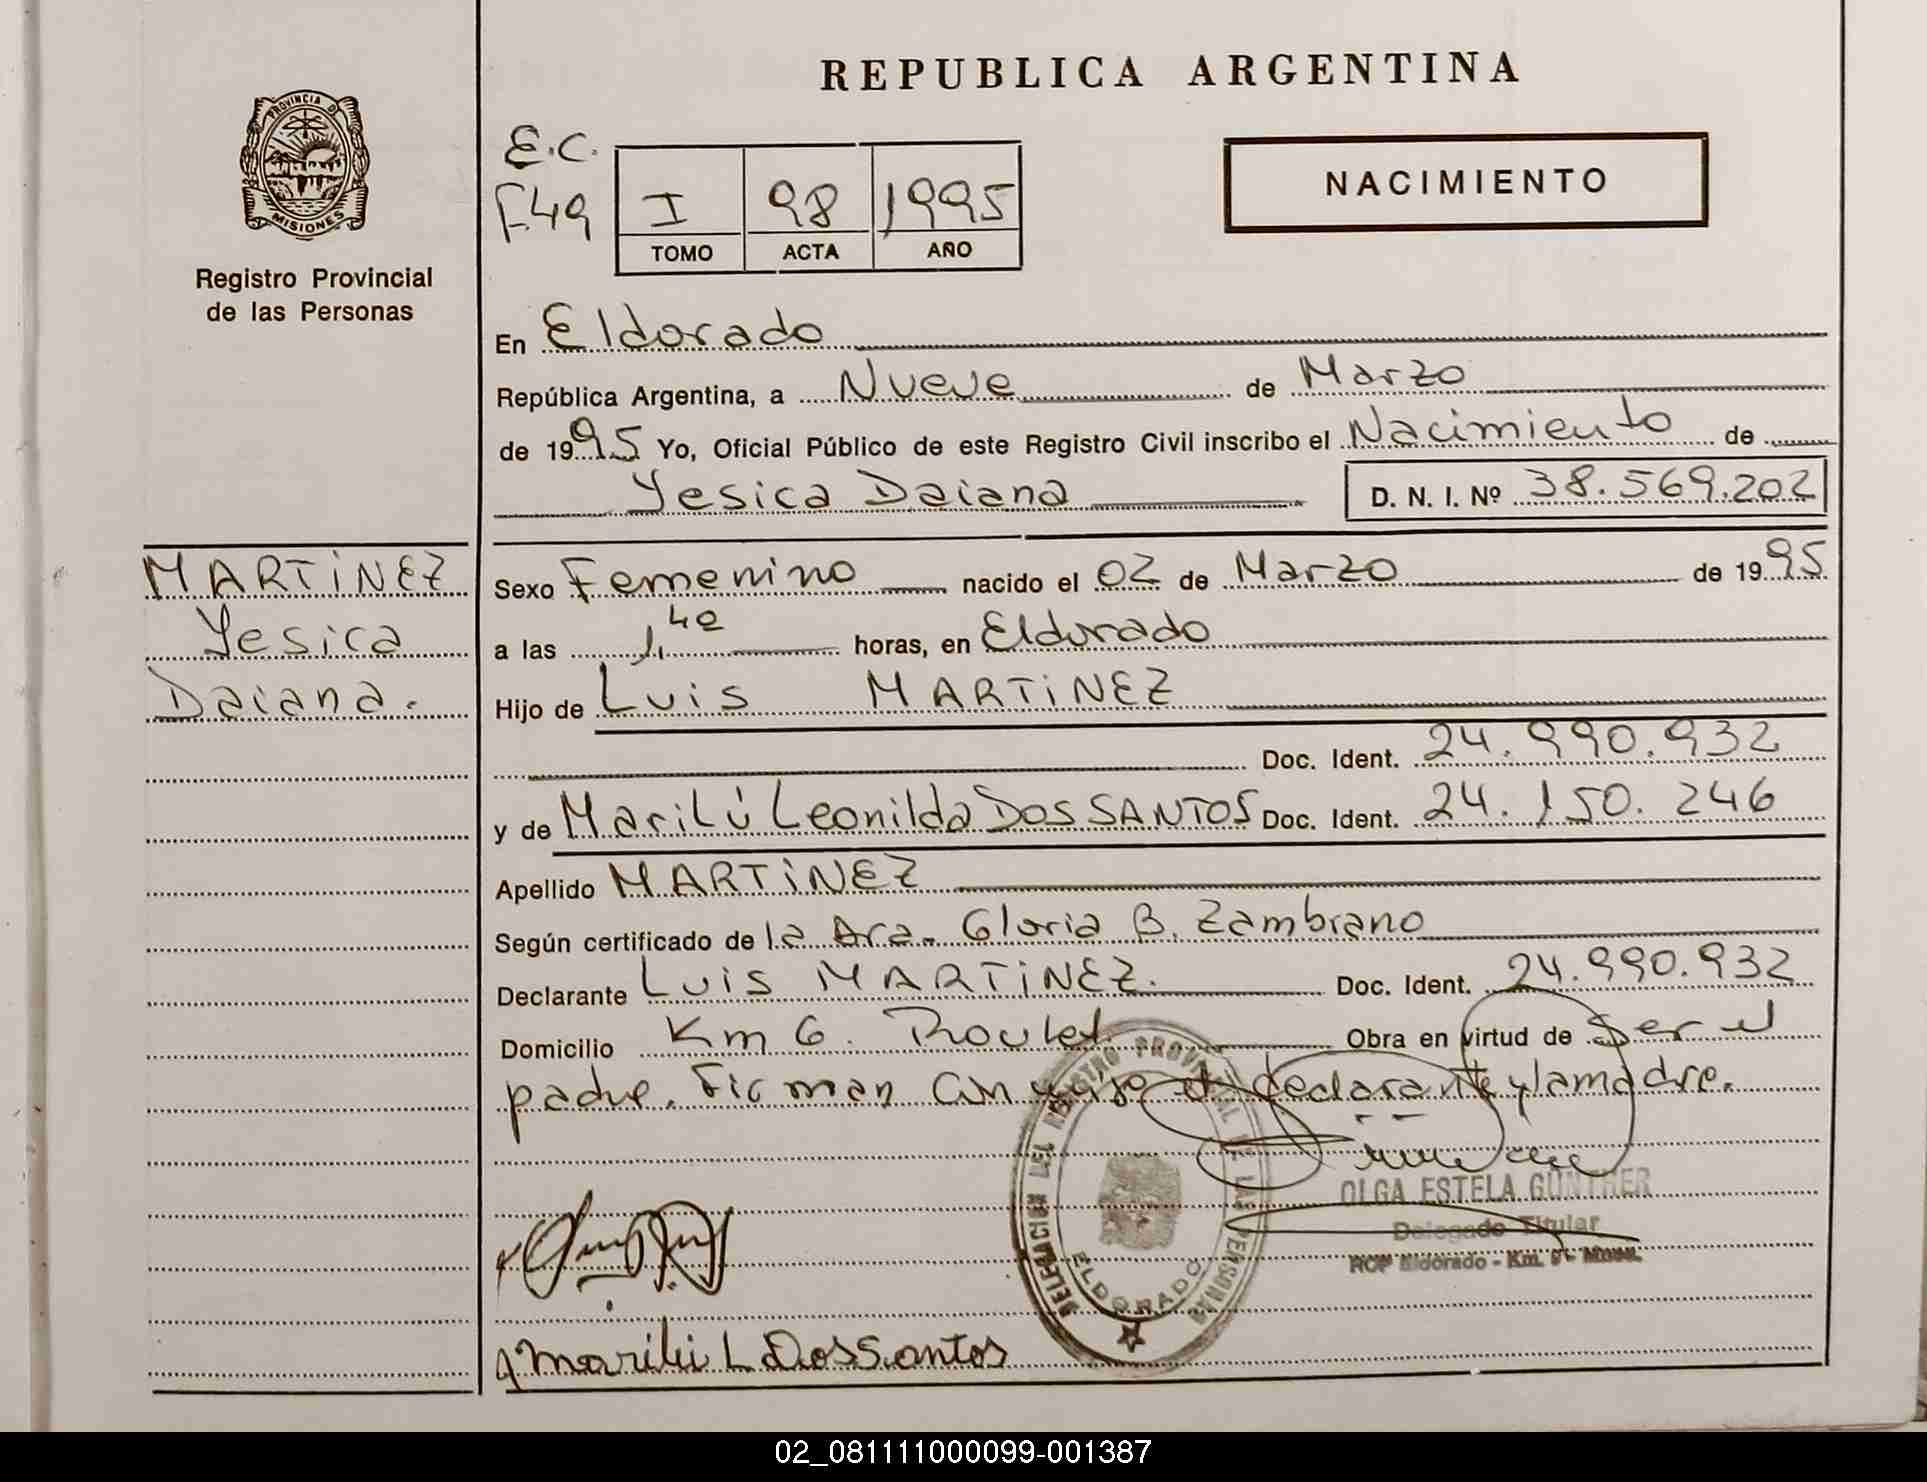 REPUBLICA ARGENTINA
PROVINCIA DE
MISIONES
Registro Provincial
de las Personas
E.C.
F.49
I 98 1995
TOMO ACTA AÑO
NACIMIENTO
En Eldorado
República Argentina, a Nueve de Marzo
de 1995 Yo, Oficial Público de este Registro Civil inscribo el Nacimiento de
Yesica Daiana D. N. I. Nº 38.569.202
MARTINEZ
Yesica
Daiana.
Sexo Femenino nacido el 02 de Marzo de 1995
a las 1,40 horas, en Eldorado
Hijo de Luis MARTINEZ
Doc. Ident. 24.990.932
y de Marilú Leonilda DOS SANTOS Doc. Ident. 24.150.246
Apellido MARTINEZ
Según certificado de la Dra. Gloria B. Zambrano
Declarante Luis MARTINEZ. Doc. Ident. 24.990.932
Domicilio Km 6. Obra en virtud de Ser el
padre. Firman declarante y la madre.
DELEGACION DEL REGISTRO PROVINCIAL DE LAS PERSONAS
ELDORADO
OLGA ESTELA GUNTHER
Delegado Titular
RCP Eldorado - Km. 9 -
Marilu L Dos Santos
02_081111000099-001387